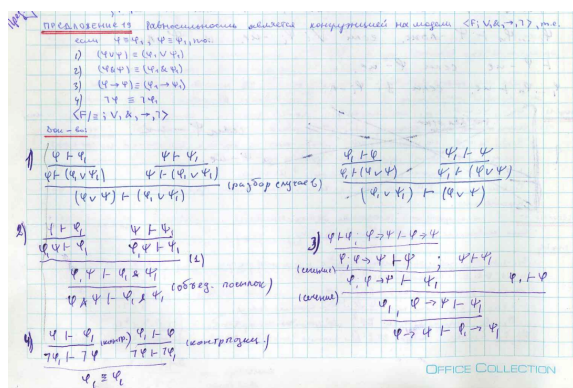 ПРЕДЛОЖЕНИЕ 19 Равносильность является конгруэнцией на модели <F; ∨, &, →, ⅂>, т.е.
если φ ≡ φ₁, ψ ≡ ψ₁, то:
1) (φ∨ψ) ≡ (φ₁∨ψ₁)
2) (φ&ψ) ≡ (φ₁&ψ₁)
3) (φ→ψ) ≡ (φ₁→ψ₁)
4) ⅂φ ≡ ⅂φ₁
<F/≡; ∨, &, →, ⅂>
Док-во:
1) φ ⊢ φ₁ ψ ⊢ ψ₁
φ ⊢ (φ₁∨ψ₁) ψ ⊢ (φ₁∨ψ₁)
(φ∨ψ) ⊢ (φ₁∨ψ₁) (разбор случаев)
φ₁ ⊢ φ ψ₁ ⊢ ψ
φ₁ ⊢ (φ∨ψ) ψ₁ ⊢ (φ∨ψ)
(φ₁∨ψ₁) ⊢ (φ∨ψ)
2) φ ⊢ φ₁ ψ ⊢ ψ₁
φ,ψ ⊢ φ₁ φ,ψ ⊢ ψ₁ (1)
φ,ψ ⊢ φ₁&ψ₁
φ&ψ ⊢ φ₁&ψ₁ (объед. посылок)
3) φ ⊢ φ; φ→ψ ⊢ φ→ψ
(сечение) φ, φ→ψ ⊢ ψ ; ψ ⊢ ψ₁
(сечение) φ, φ→ψ ⊢ ψ₁ φ₁ ⊢ φ
φ₁, φ→ψ ⊢ ψ₁
φ→ψ ⊢ φ₁→ψ₁
4) φ ⊢ φ₁ (контр.) φ₁ ⊢ φ (контрпозиц.)
⅂φ₁ ⊢ ⅂φ ⅂φ ⊢ ⅂φ₁
φ₁ ≡ φ₁
OFFICE COLLECTION